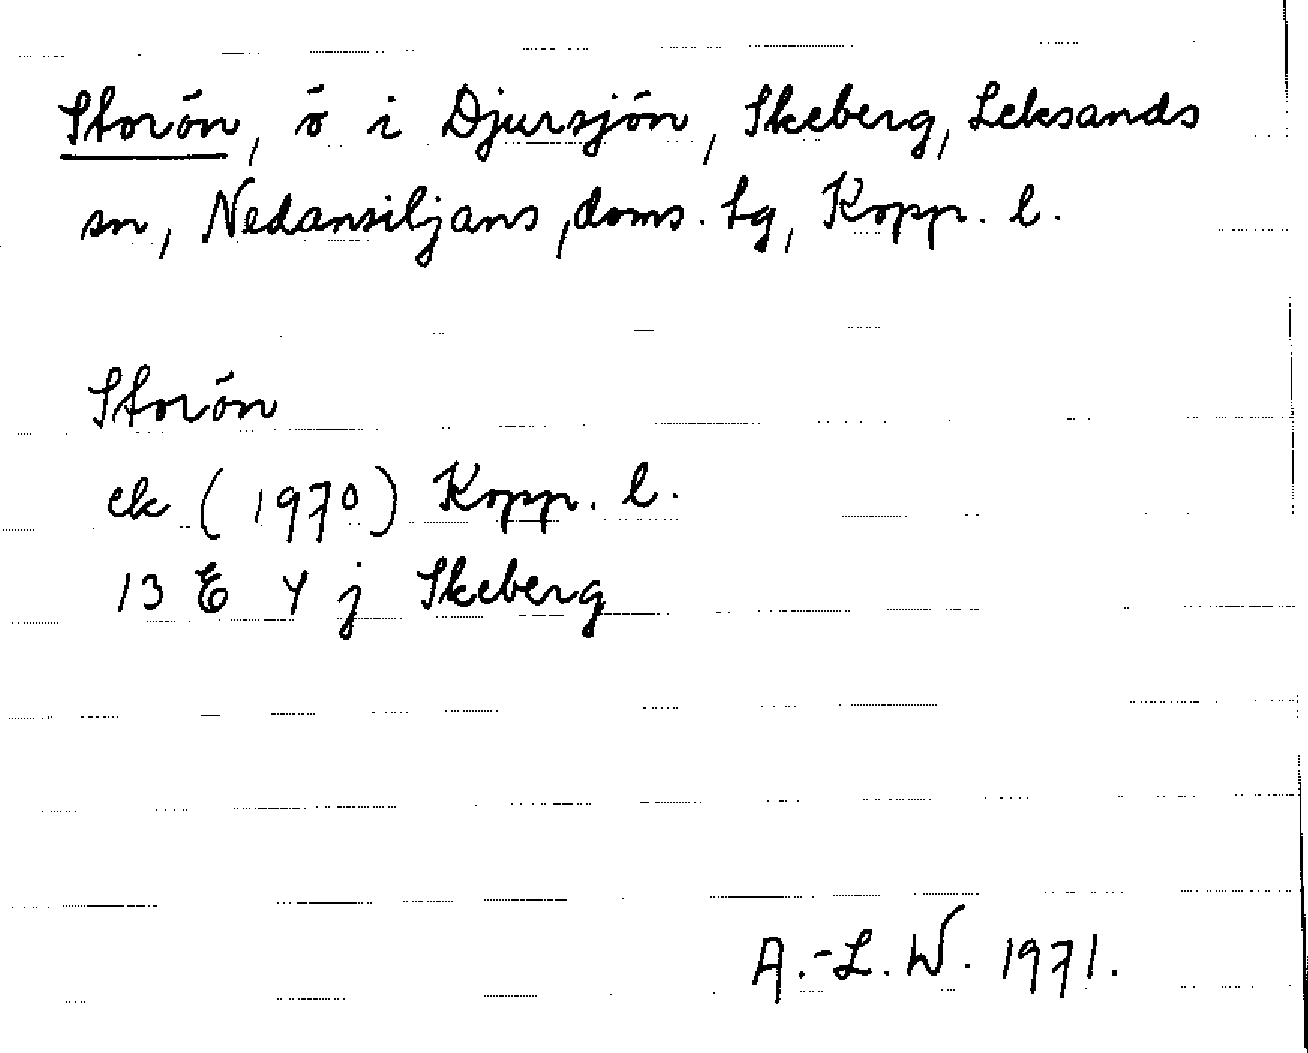 Storön, ö i Djursjön, Skeberg, Leksands
sn, Nedansiljans, doms. tg, Kopp. l.
Storön
ek (1970) Kopp. l.
13 E 4 j Skeberg
A.-L. W. 1971.